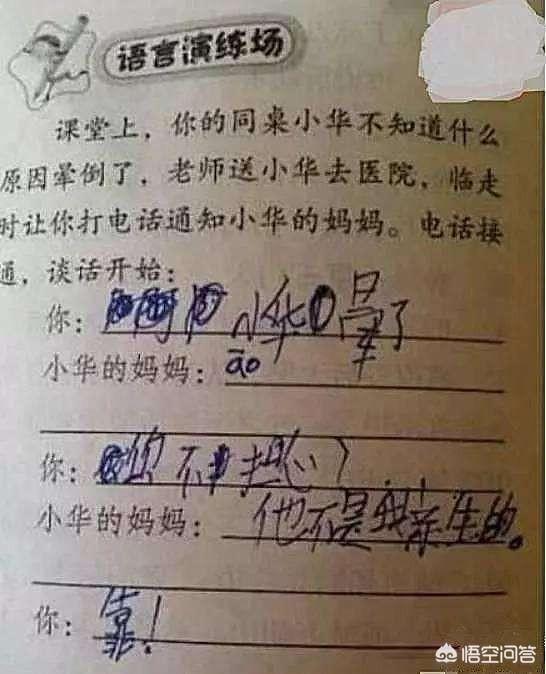 语言演练场
课堂上，你的同桌小华不知道什么
原因晕倒了，老师送小华去医院，临走
时让你打电话通知小华的妈妈。电话接
通，谈话开始：
你：小华晕了
小华的妈妈：āo
你：您不担心？
小华的妈妈：他不是我亲生的。
你：靠！
悟空问答